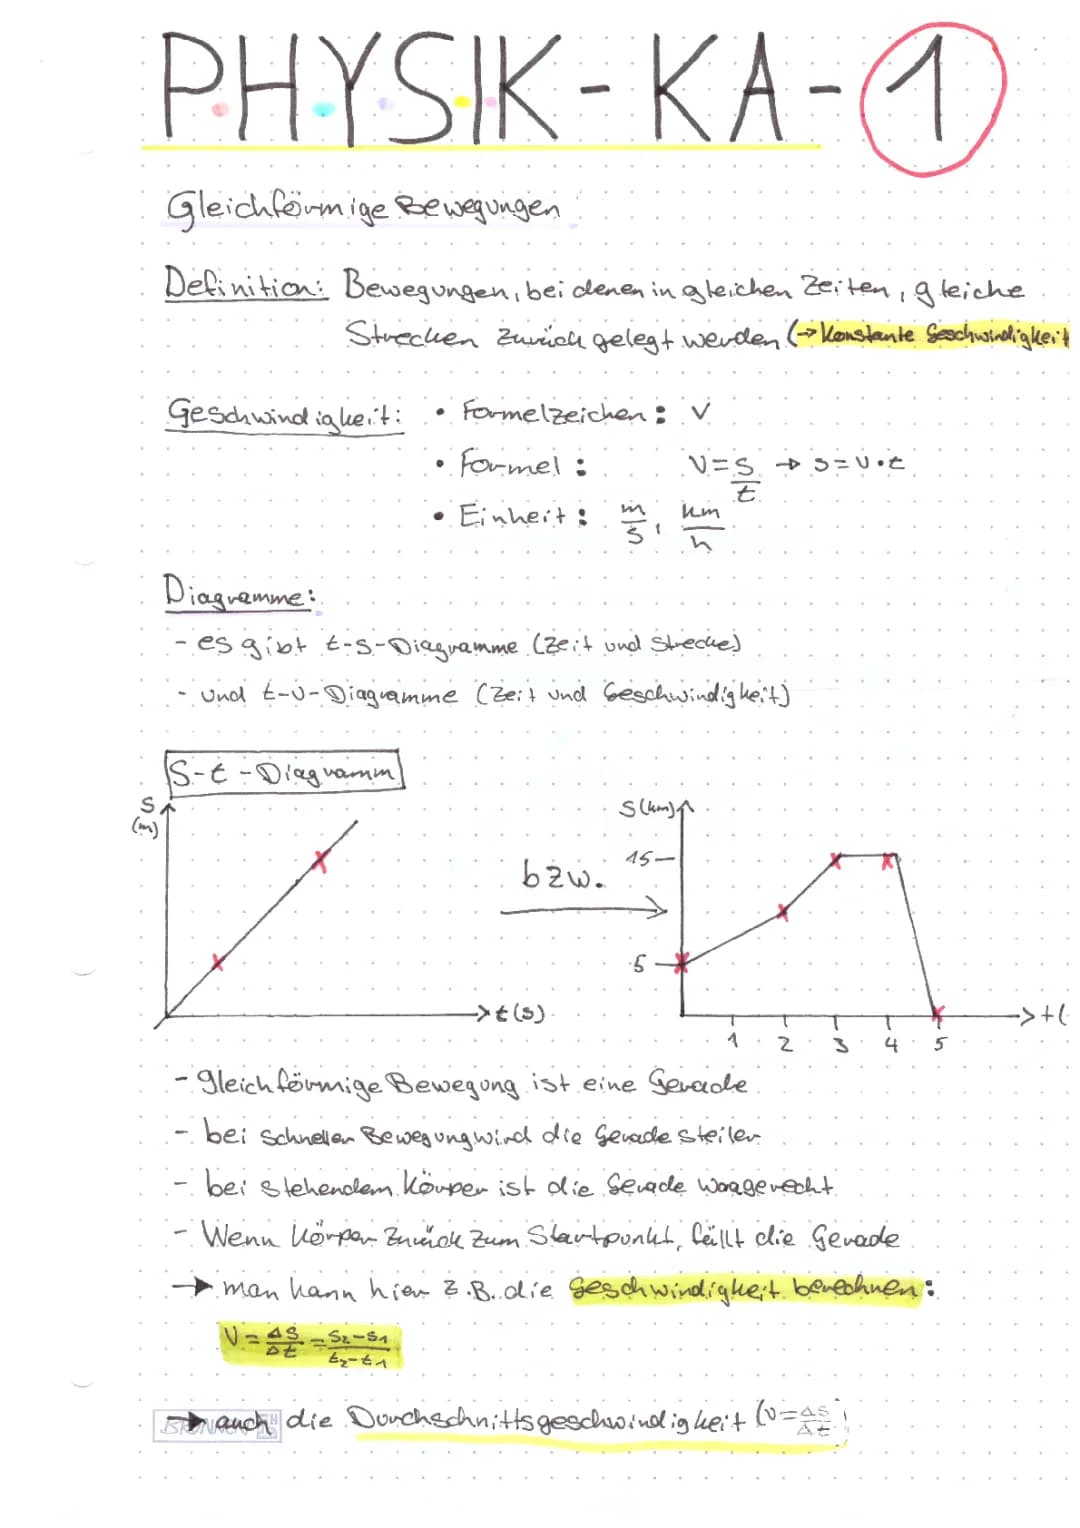 PHYSIK-KA-1
Gleichförmige Bewegungen
Definition: Bewegungen, bei denen in gleichen Zeiten, gleiche
Strecken zurück gelegt werden (→ Konstante Geschwindigkeit
Geschwindigkeit: • Formelzeichen: v
• Formel: v = s/t → s = v • t
• Einheit: m/s, km/h
Diagramme:
- es gibt t-s-Diagramme (Zeit und Strecke)
- und t-v-Diagramme (Zeit und Geschwindigkeit)
S-t-Diagramm
s (m)
t (s)
bzw.
S (km)
15
5
1 2 3 4 5
t (
- gleichförmige Bewegung ist eine Gerade
- bei schneller Bewegung wird die Gerade steiler
- bei stehendem Körper ist die Gerade waagerecht
- Wenn Körper zurück zum Startpunkt, fällt die Gerade
→ man kann hier z.B. die Geschwindigkeit berechnen:
v = Δs/Δt = s₂-s₁/t₂-t₁
→ auch die Durchschnittsgeschwindigkeit (v = Δs/Δt)
BRUNNEN